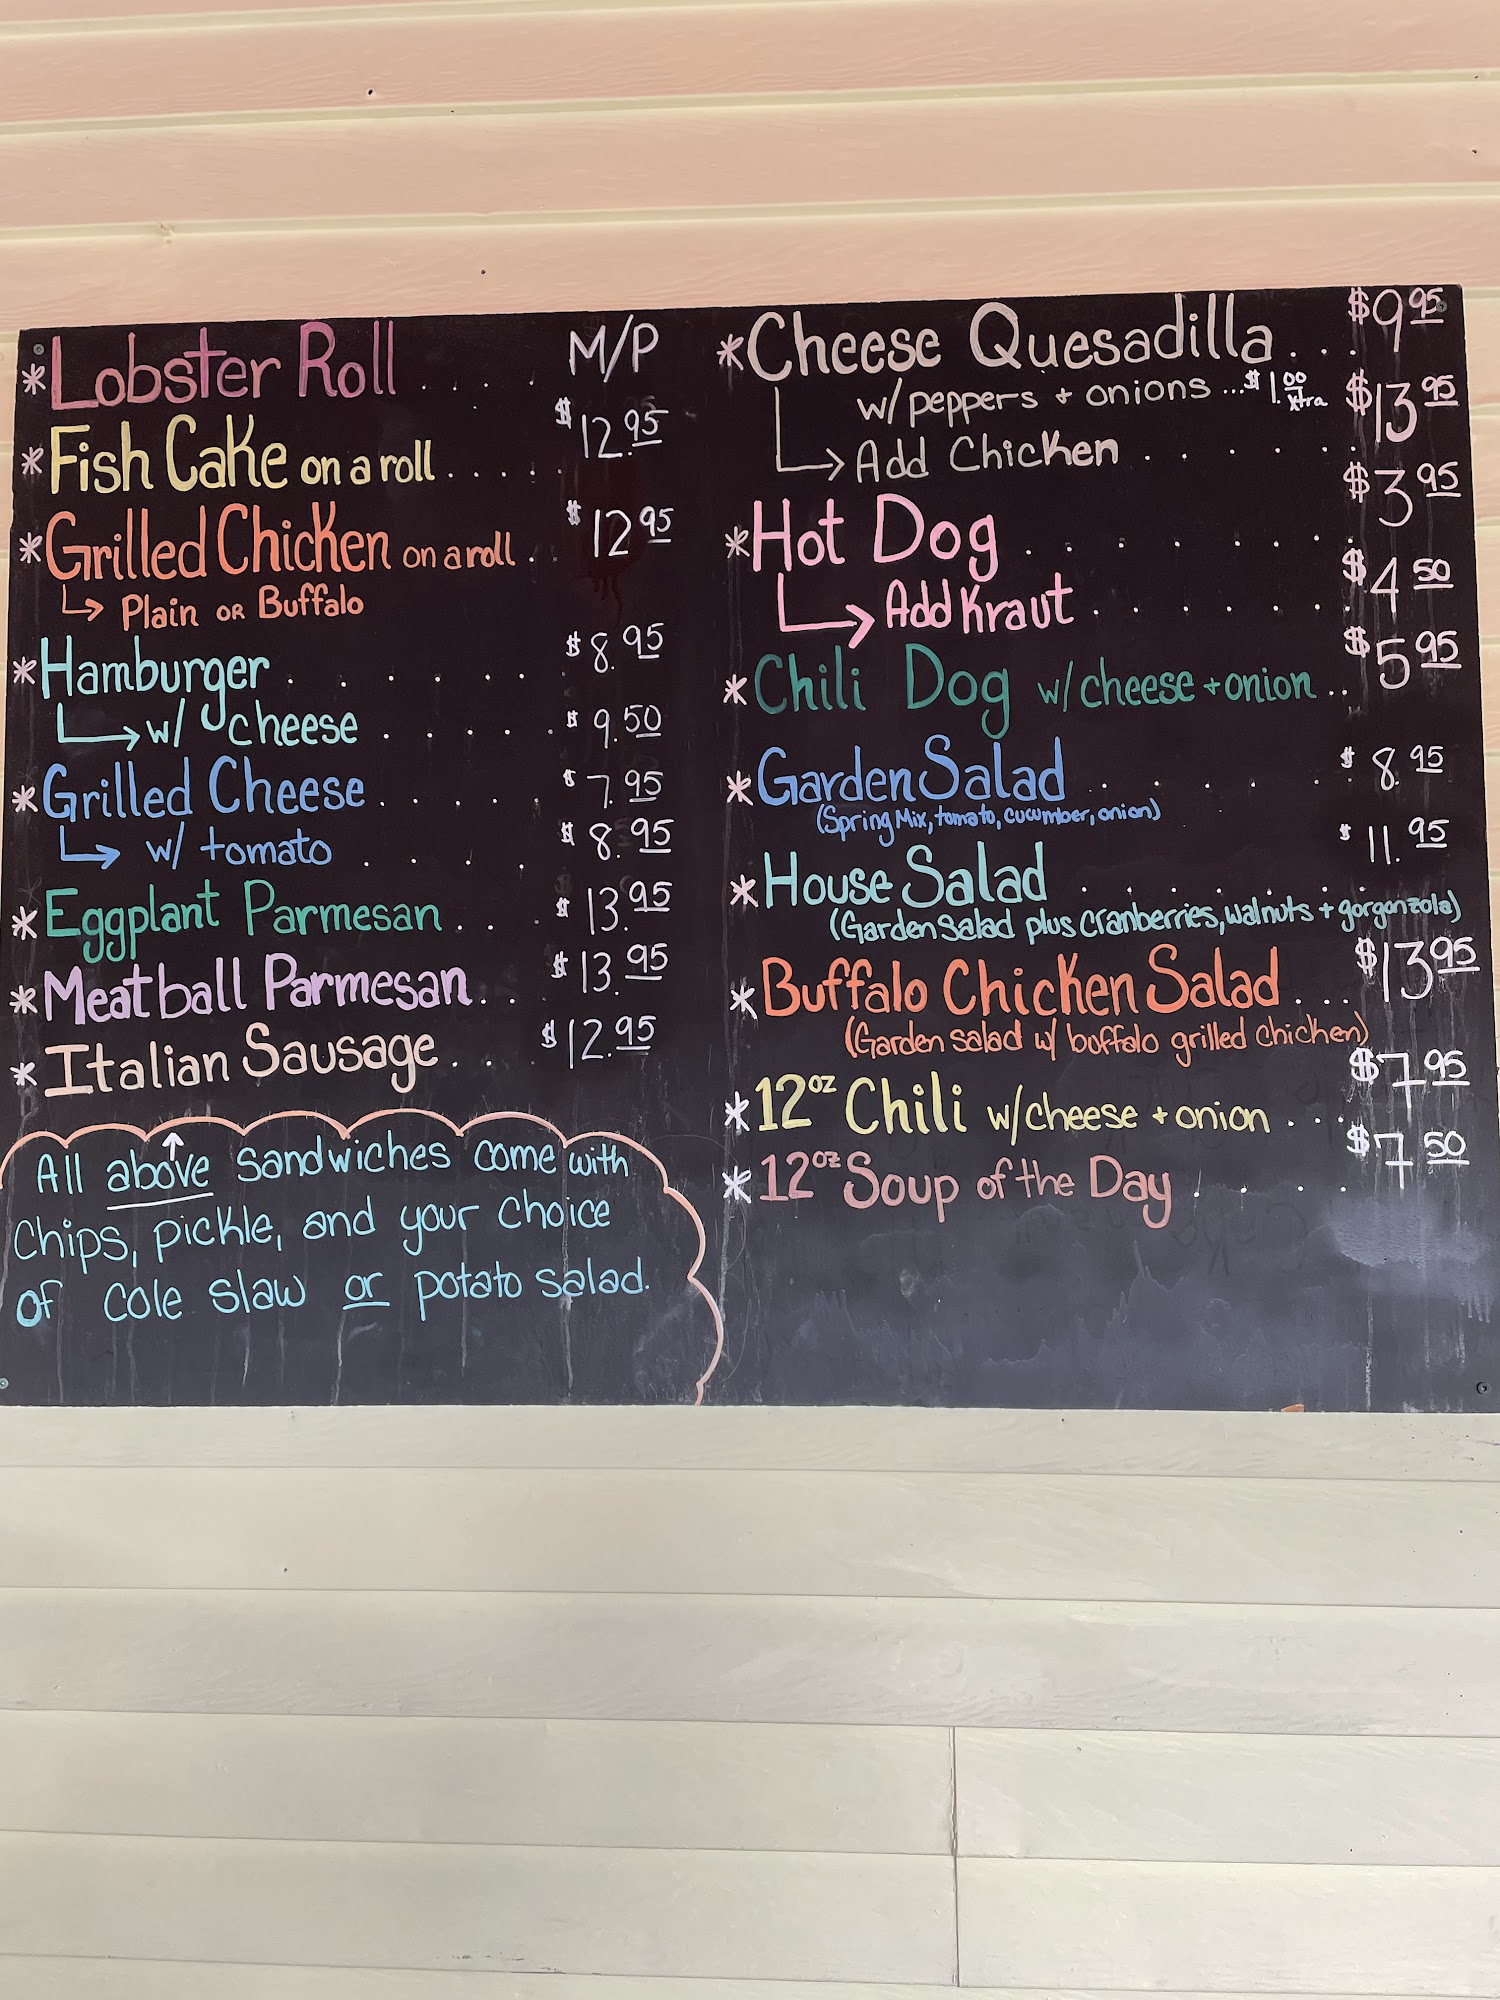 * Lobster Roll . . . . M/P
* Fish Cake on a roll . . . . . $12.95
* Grilled Chicken on a roll . . $12.95
Plain OR Buffalo
* Hamburger . . . . . . $8.95
w/ cheese . . . . . . $9.50
* Grilled Cheese . . . . . $7.95
w/ tomato . . . . . $8.95
* Eggplant Parmesan . . . $13.95
* Meatball Parmesan . . . $13.95
* Italian Sausage . . . $12.95
All above sandwiches come with
Chips, pickle, and your choice
of cole slaw or potato salad.
* Cheese Quesadilla . . . $9.95
w/ peppers + onions ... $1.00 xtra
Add Chicken . . . . . . $13.95
* Hot Dog . . . . . . . . $3.95
Add Kraut . . . . . . . $4.50
* Chili Dog w/ cheese + onion .. $5.95
* Garden Salad . . . . . . $8.95
(Spring Mix, tomato, cucumber, onion)
* House Salad . . . . . . . $11.95
(Garden Salad plus cranberries, walnuts + gorgonzola)
* Buffalo Chicken Salad . . . $13.95
(Garden salad w/ buffalo grilled chicken)
* 12oz Chili w/ cheese + onion . . . $7.95
* 12oz Soup of the Day . . . . . $7.50